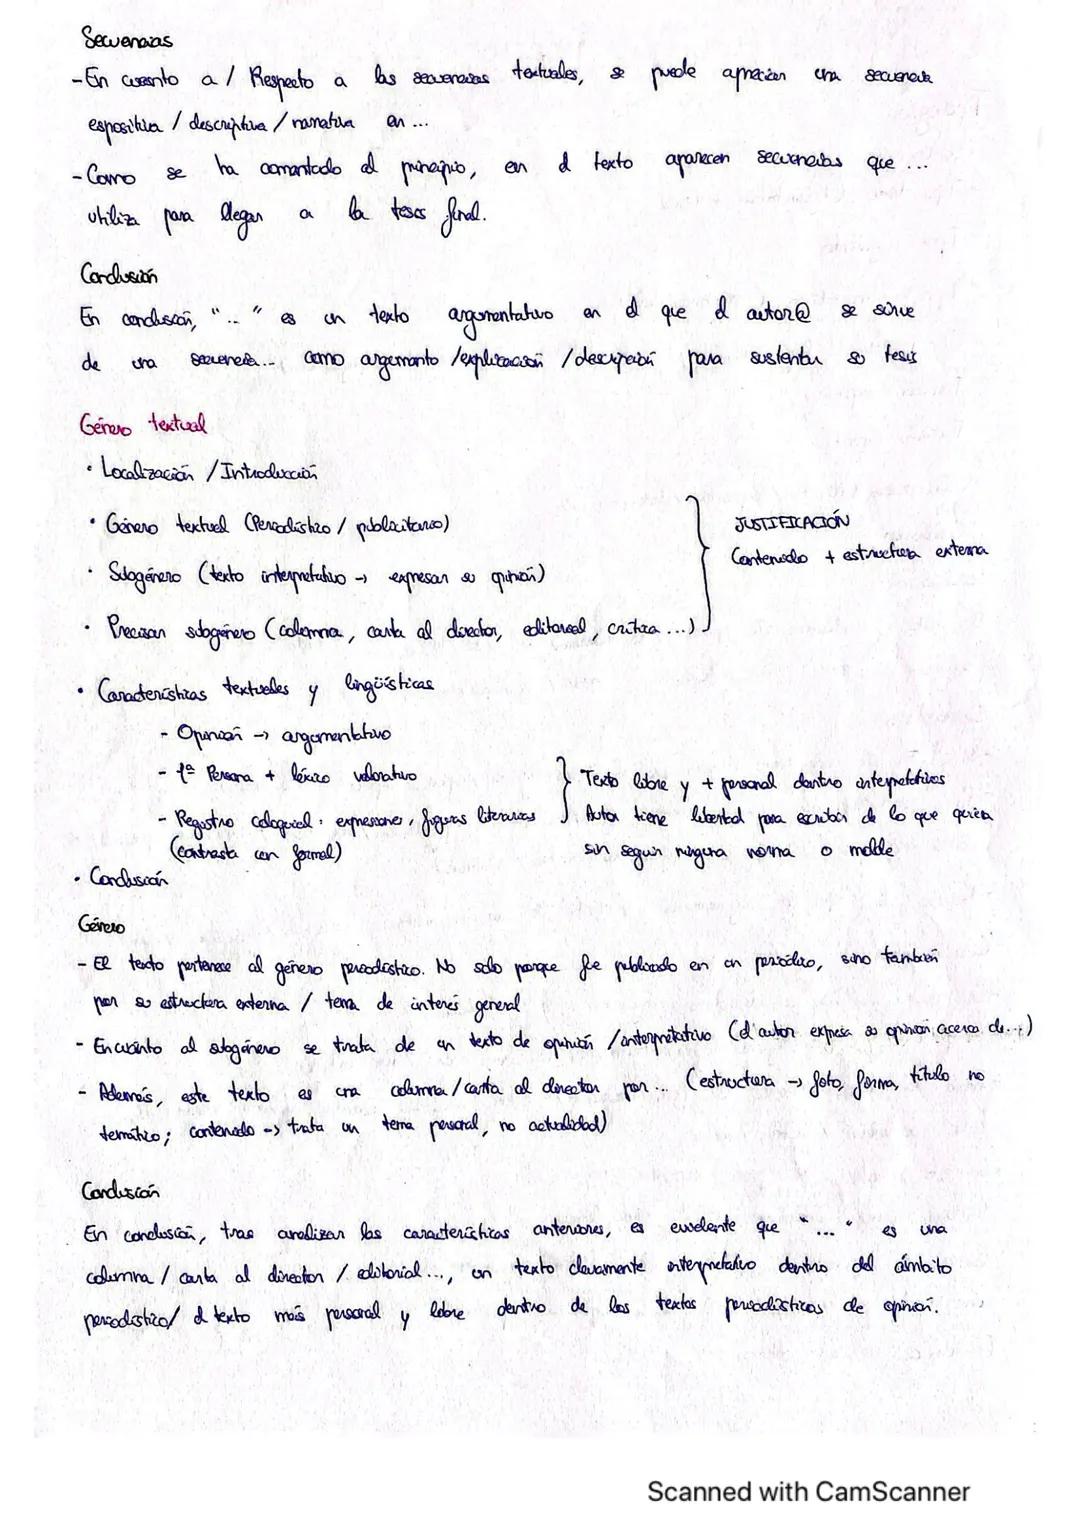 Secuencias
- En cuanto a / Respecto a las secuencias textuales, se puede apreciar una secuencia
espositiva / descriptiva / narrativa en ...
- Como se ha comentado al principio, en el texto aparecen secuencias que ...
utiliza para llegar a la tesis final.
Conclusión
En conclusión, "..." es un texto argumentativo en el que el autor@ se sirve
de una secuencia... como argumento / explicación / descripción para sustentar su tesis
Género textual
• Localización / Introducción
• Género textual (Periodístico / publicitario)
• Subgénero (texto interpretativo → expresar su opinión)
• Precisar subgénero (columna, carta al director, editorial, crítica ...)
JUSTIFICACIÓN
Contenido + estructura externa
• Características textuales y lingüísticas
- Opinión → argumentativo
- 1ª Persona + léxico valorativo
- Registro coloquial: expresiones, figuras literarias
(contrasta con formal)
Texto libre y + personal dentro interpretativos
Autor tiene libertad para escribir de lo que quiera
sin seguir ninguna norma o molde
• Conclusión
Género
- El texto pertenece al género periodístico. No solo porque fue publicado en un periódico, sino también
por su estructura externa / tema de interés general
- En cuánto al subgénero se trata de un texto de opinión / interpretativo (el autor expresa su opinión acerca de...)
- Además, este texto es una columna / carta al director por ... (estructura → foto, forma, título no
temático; contenido → trata un tema personal, no actualidad)
Conclusión
En conclusión, tras analizar las características anteriores, es evidente que "..." es una
columna / carta al director / editorial ..., un texto claramente interpretativo dentro del ámbito
periodístico / el texto más personal y libre dentro de los textos periodísticos de opinión.
Scanned with CamScanner